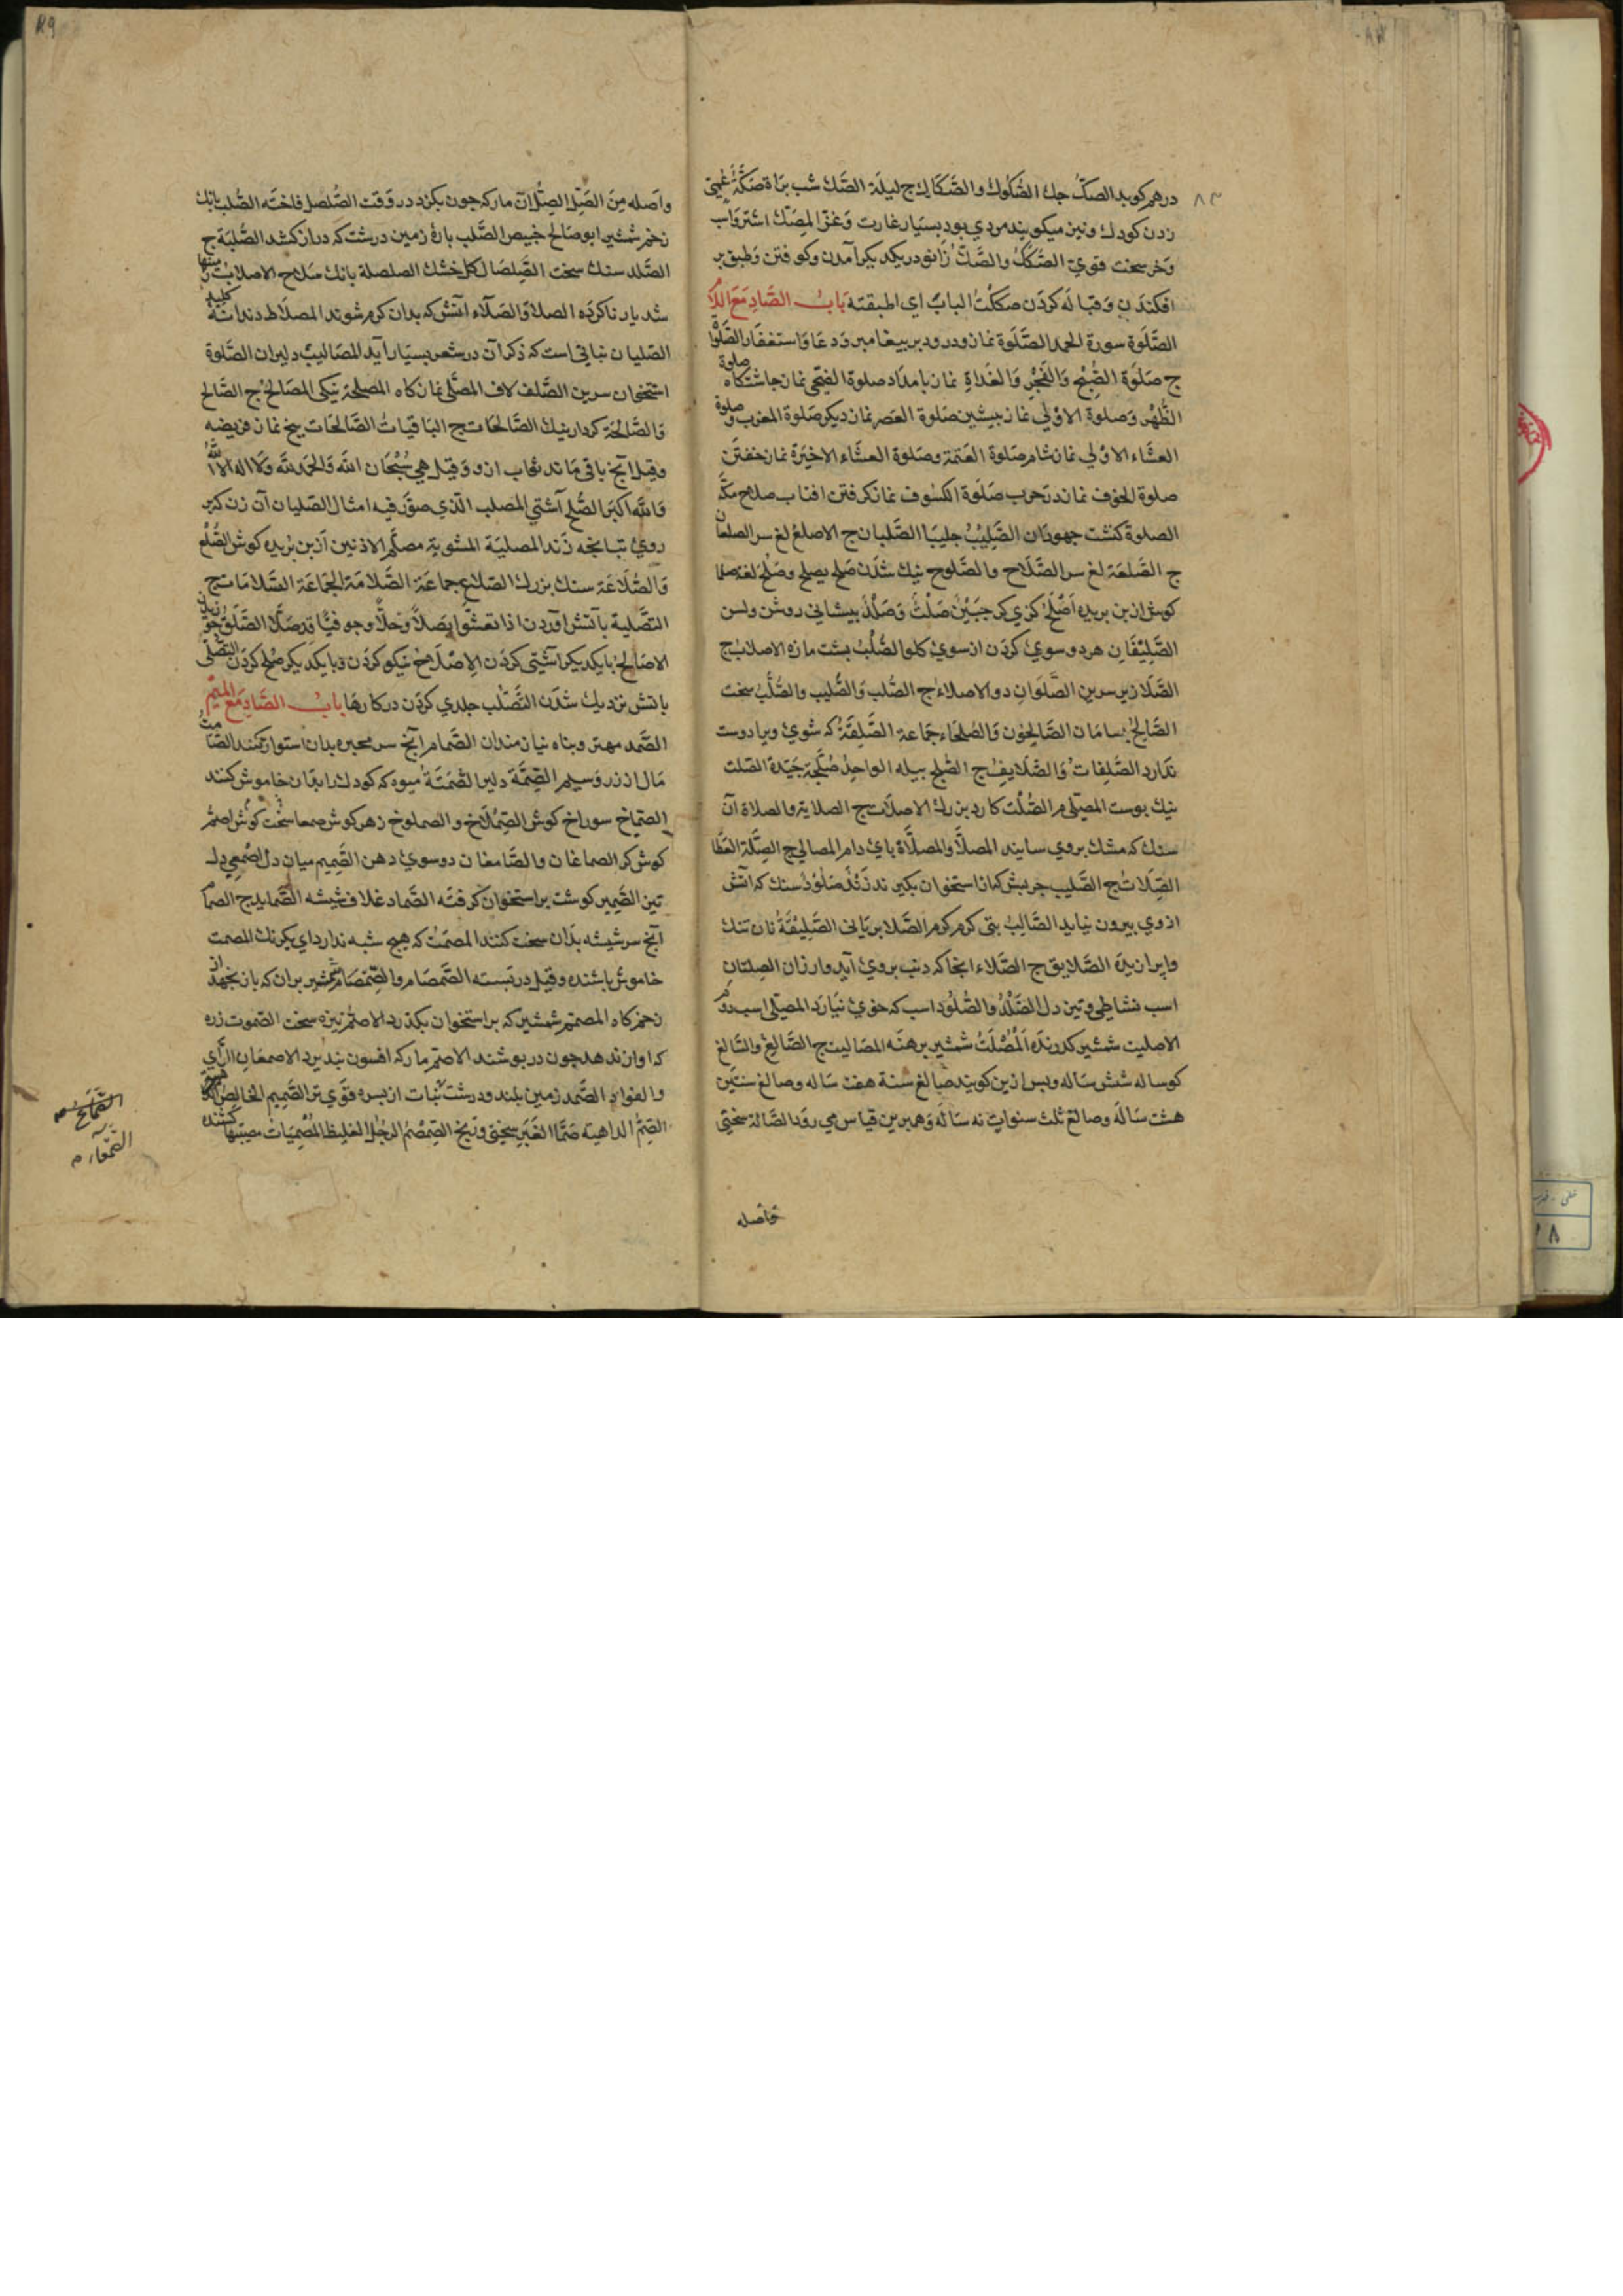 درهم كويد الصكّ جك الصّكوك والصّكاك ج ليلة الصّك شب براة صكّة عُمَيّ
زدن كودك ونيز ميكويند مردي بود بسيار غارت وغزا المِصَكّ اشتر واسب
وخر سخت قوي الصَكَكُ والصَّكّ زانو در يكديكر آمدن وكوفتن وطبق بر
افكندن وقباله كردن صككتُ الباب اي اطبقته بابُ الصَّادِ مَعَ اللام
الصّلوة سورة الحمد الصّلوة نماز ودرود بر بيغامبر ودعا واستغفار الصّلوات
ج صلوة الصُّبْح والفَجْر والغداة نماز بامداد صلوة الضحى نماز جاشتكاه صلوة
الظُّهْر وصلوة الاوُلي نماز بيشين صلوة العصر نماز ديكر صلوة المغرب وصلوة
العشاء الاوُلي نماز شام صلوة العتمة وصلوة العشاء الاخيرة نماز خفتن
صلوة الخوف نماز در حرب صلوة الكسوف نماز كرفتن افتاب صلاح مكّه
الصلوة كنشت جهودان الصَّلِيْبُ جليبا الصّلبان ج الاصلع لغ سر الصلعان
ج الصّلعة لغ سر الصّلاح والصّلوح نيك شدن صَلَحَ يصلح وصَلُحَ لغة
كوش از بن بريده اَصْلَخُ كري كر جَبِيْنٌ صَلْتٌ وصَلْدٌ بيشاني روشن
الصَّلِيْفَانِ هر دو سوي كردن از سوي كلو الصُّلْبُ بشت مازه الاصلاب ج
الصّلا زير سرين الصَّلَوَانِ دو الاصلاء ج الصُّلب والصّليب والصُّلَّبُ سخت
الصَّالِحُ بسامان الصّالحون والصُلحاء جماعة الصَّلِفَةُ كه شوي ويرا دوست
ندارد الصَّلِفاتُ والصّلايفُ ج الصُلَّج بيله الواحدُ صُلَّجَة جيّدة الصّلت
نيك بوست المصلى م الصُّلْت كارد بزرك الاصلات ج الصلاية والصلاة آن
سنك كه مشك بروي سايند المصلاّ والمصلاّة باي دام المصالي ج الصِّلَّة
الصِّلَات ج الصَّليب جربش كه از استخوان بكيرند زَنْدٌ صَلُوْدٌ سنك كه اتش
ازوي بيرون نيايد الصَّالِبُ تبى كرم كرم الصّلا برياني الصَّلِيْقَةُ نان تنك
الصَّلايق ج الصّلاء انجا كه دنب بروي آيد الصلتان
اسب نشاطي وتيز دل الصَّلْدُ والصَّلُود اسب كه خوي نيارد المصلى اسب دوم
الاصليت شمشير كذرنده المُصْلَتُ شمشير برهنه المصاليت ج الصّالغ والسّالغ
كوساله شش ساله وبس ازين كويند صالغ سنة هفت ساله وصالغ سنتين
هشت ساله وصالغ ثلث سنوات نه ساله وهم برين قياس مي رود الصّالة سختي
وأصله
واصله مِن الصِّلّ الصِّلّ آن مار كه جون بكزد در وقت الصُّلصل فاخته الصّلب بانك
زخم شمشير ابو صالح خبيص الصّلب بارهٔ زمين درشت كه دراز كشد الصِّلَبَة ج
الصّلد سنك سخت الصَّلصَال كل خشك الصلصلة بانك سلاح الاصلاب
شديار ناكرده الصلا والصّلاء اتش كه بدان كرم شوند المصلاط دندانه كليد
الصّليان نباتي است كه ذكر آن در شعر بسيار آيد المصاليب دليران الصّلوة
استخوان سرين الصّلف لاف المصلّى نماز كاه المصلحة نيكى المصالحُ ج الصّالح
والصّالحة كردار نيك الصّالحات ج الباقياتُ الصّالحات بنج نماز فريضه
وقيل آنج باقي ماند ثواب ازو وقيل هي سُبْحَان الله والحمد لله ولا اله الا الله
والله اكبر الصُّلح آشتي المصلب الّذي صوّر فيه امثال الصليبان آن زن كبر
روي تبانجه زند المصليّة المشوية مصلّم الاذنين از بن بريده كوش الصُّلَّعُ
والصُّلَّاعَة سنك بزرك الصلاع جماعة الصّلامة الجماعة الصّلامات ج
التصلية بآتش آوردن اذا تعشّوا بصلاً وخلاًّ وجوفيًّا
الاصَالحُ با يكديكر آشتى كردن الإصْلَاح نيكو كردن وبا يكديكر صلح كردن التصلّى
باتش نزديك شدن التّصلّب جلدي كردن در كارها بابُ الصَّادِ مَعَ المِيْم
الصّمد مهتر وبناه نيازمندان الصّمام آنج سر محبره بدان استوار كنند الصَّامتُ
مال از زر وسيم الصِّمَّة دلير الصُّمْتَة ميوه كه كودك را بدان خاموش كنند
الصّماخ سوراخ كوش الصِّمْلَاخ والصملوخ زهر كوش صمعا سخت كوش اصَمُّ
كوش كر الصماغان والصَّامغان دو سوي دهن الصَّمِيم ميان دل اصْمَعِي دل
تيز الصّمير كوشت بر استخوان كرفته الصّماد غلاف شيشه الصّمايد ج
آنج سر شيشه بدان سخت كنند المصمَتُ كه هيج شبه ندارد اي يكرنك المصمت
خاموش باشنده وقيل در بسته الصّمصام والصِّمصَامة شمشير بران كه باز نجهد از
زخم كاه المصمّم شمشير كه بر استخوان بكذرد الاصَمُّ نيزه سخت الصّموت زره
كه اواز ندهد جون در بوشند الاصمّ مار كه افسون نبذيرد الاصمعَانِ الرَّاي
والفواد الصّمد زمين بلند ودرشت نبات از بس قوي تر الصَّمِيم الخالص
الصِّمُّ الداهية صَمَّا الغَبَرِ سختي ورنج الصِمصُم الرجُل الغليظ المُصْمِيَات